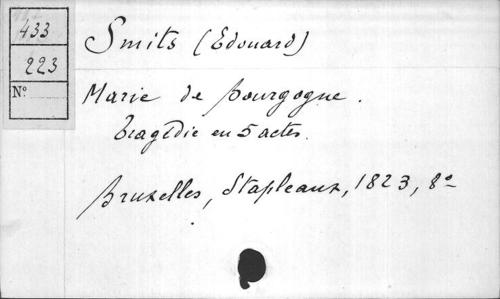 433
Smits (Edouard)
223
Nº
Marie de bourgogne.
tragédie en 5 actes.
Bruxelles, Stapleaux, 1823, 8º